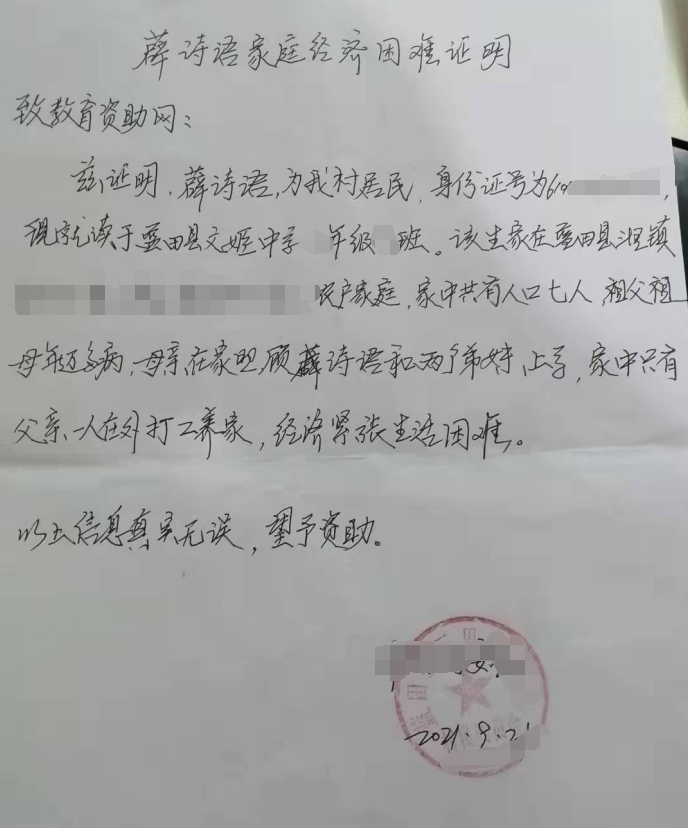 薛诗语家庭经济困难证明
致教育资助网：
兹证明，薛诗语，为我村居民，身份证号为61
现就读于蓝田县文姬中学 年级 班。该生家在蓝田县汩镇
农户家庭，家中共有人口七人，祖父祖
母年迈多病，母亲在家照顾薛诗语和两个弟妹上学，家中只有
父亲一人在外打工养家，经济紧张生活困难。
以上信息真实无误，望予资助。
2021.9.21